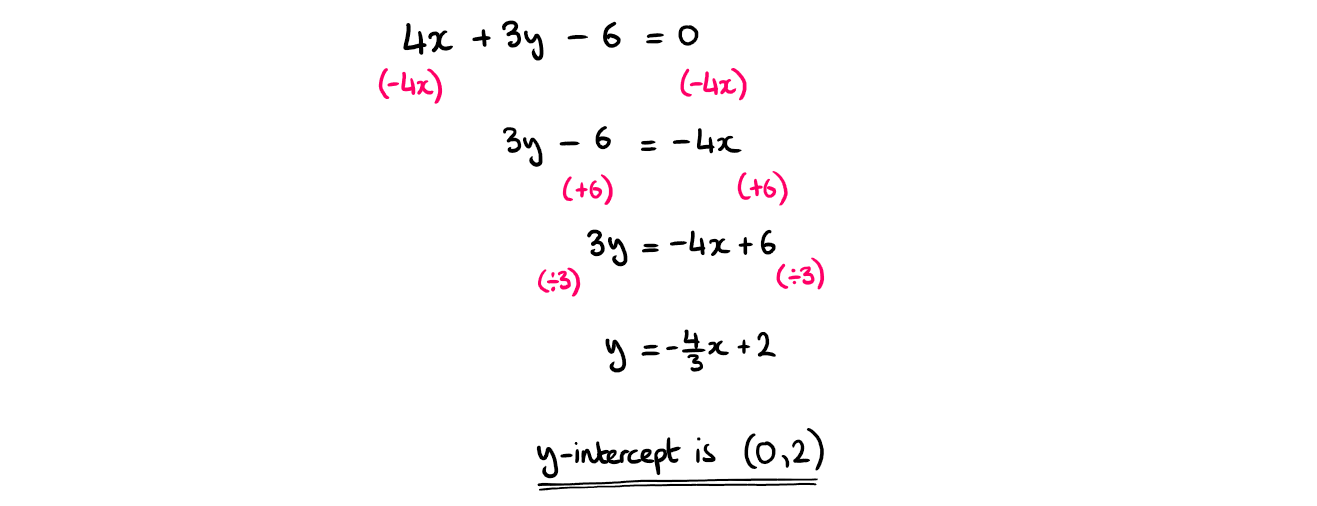 4x + 3y - 6 = 0
(-4x) (-4x)
3y - 6 = -4x
(+6) (+6)
3y = -4x + 6
(÷3) (÷3)
y = -4/3x + 2
y-intercept is (0,2)